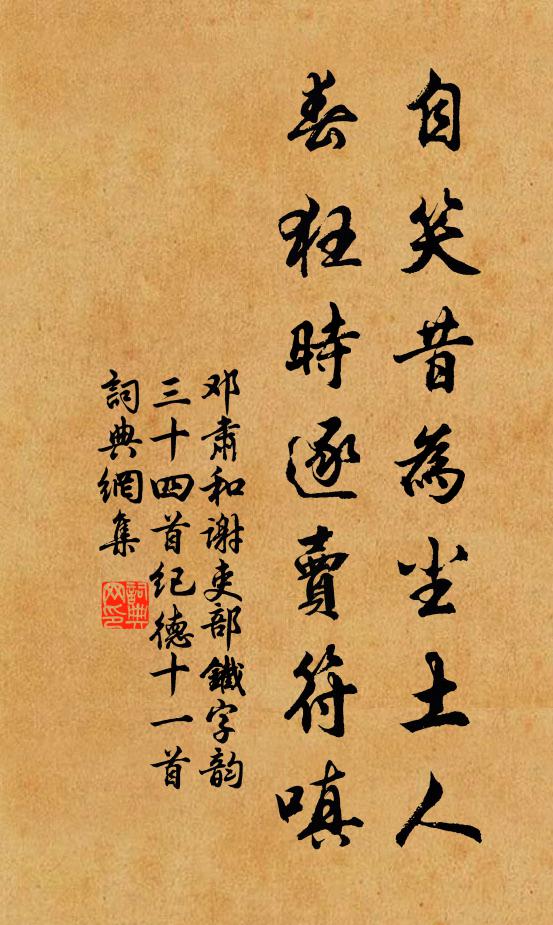 自笑昔為尘土人
春狂時逐賣符嗔
邓肅和谢吏部鐵字韵
三十四首纪德十一首
詞典網集
詞典网印